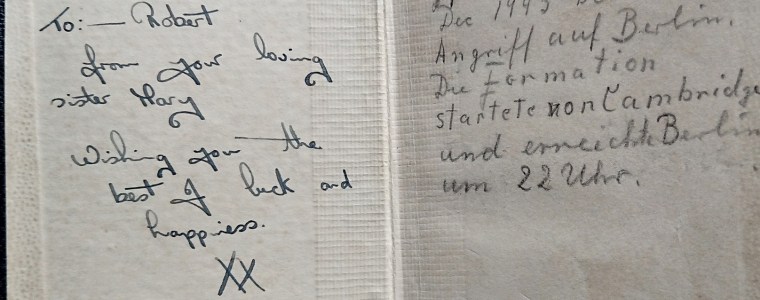 To:— Robert
from your loving
sister Mary
Wishing you the
best of luck and
happiness.
XX
Dec 1943
Angriff auf Berlin.
Die Formation
startete von Cambridge
und erreichte Berlin
um 22 Uhr.